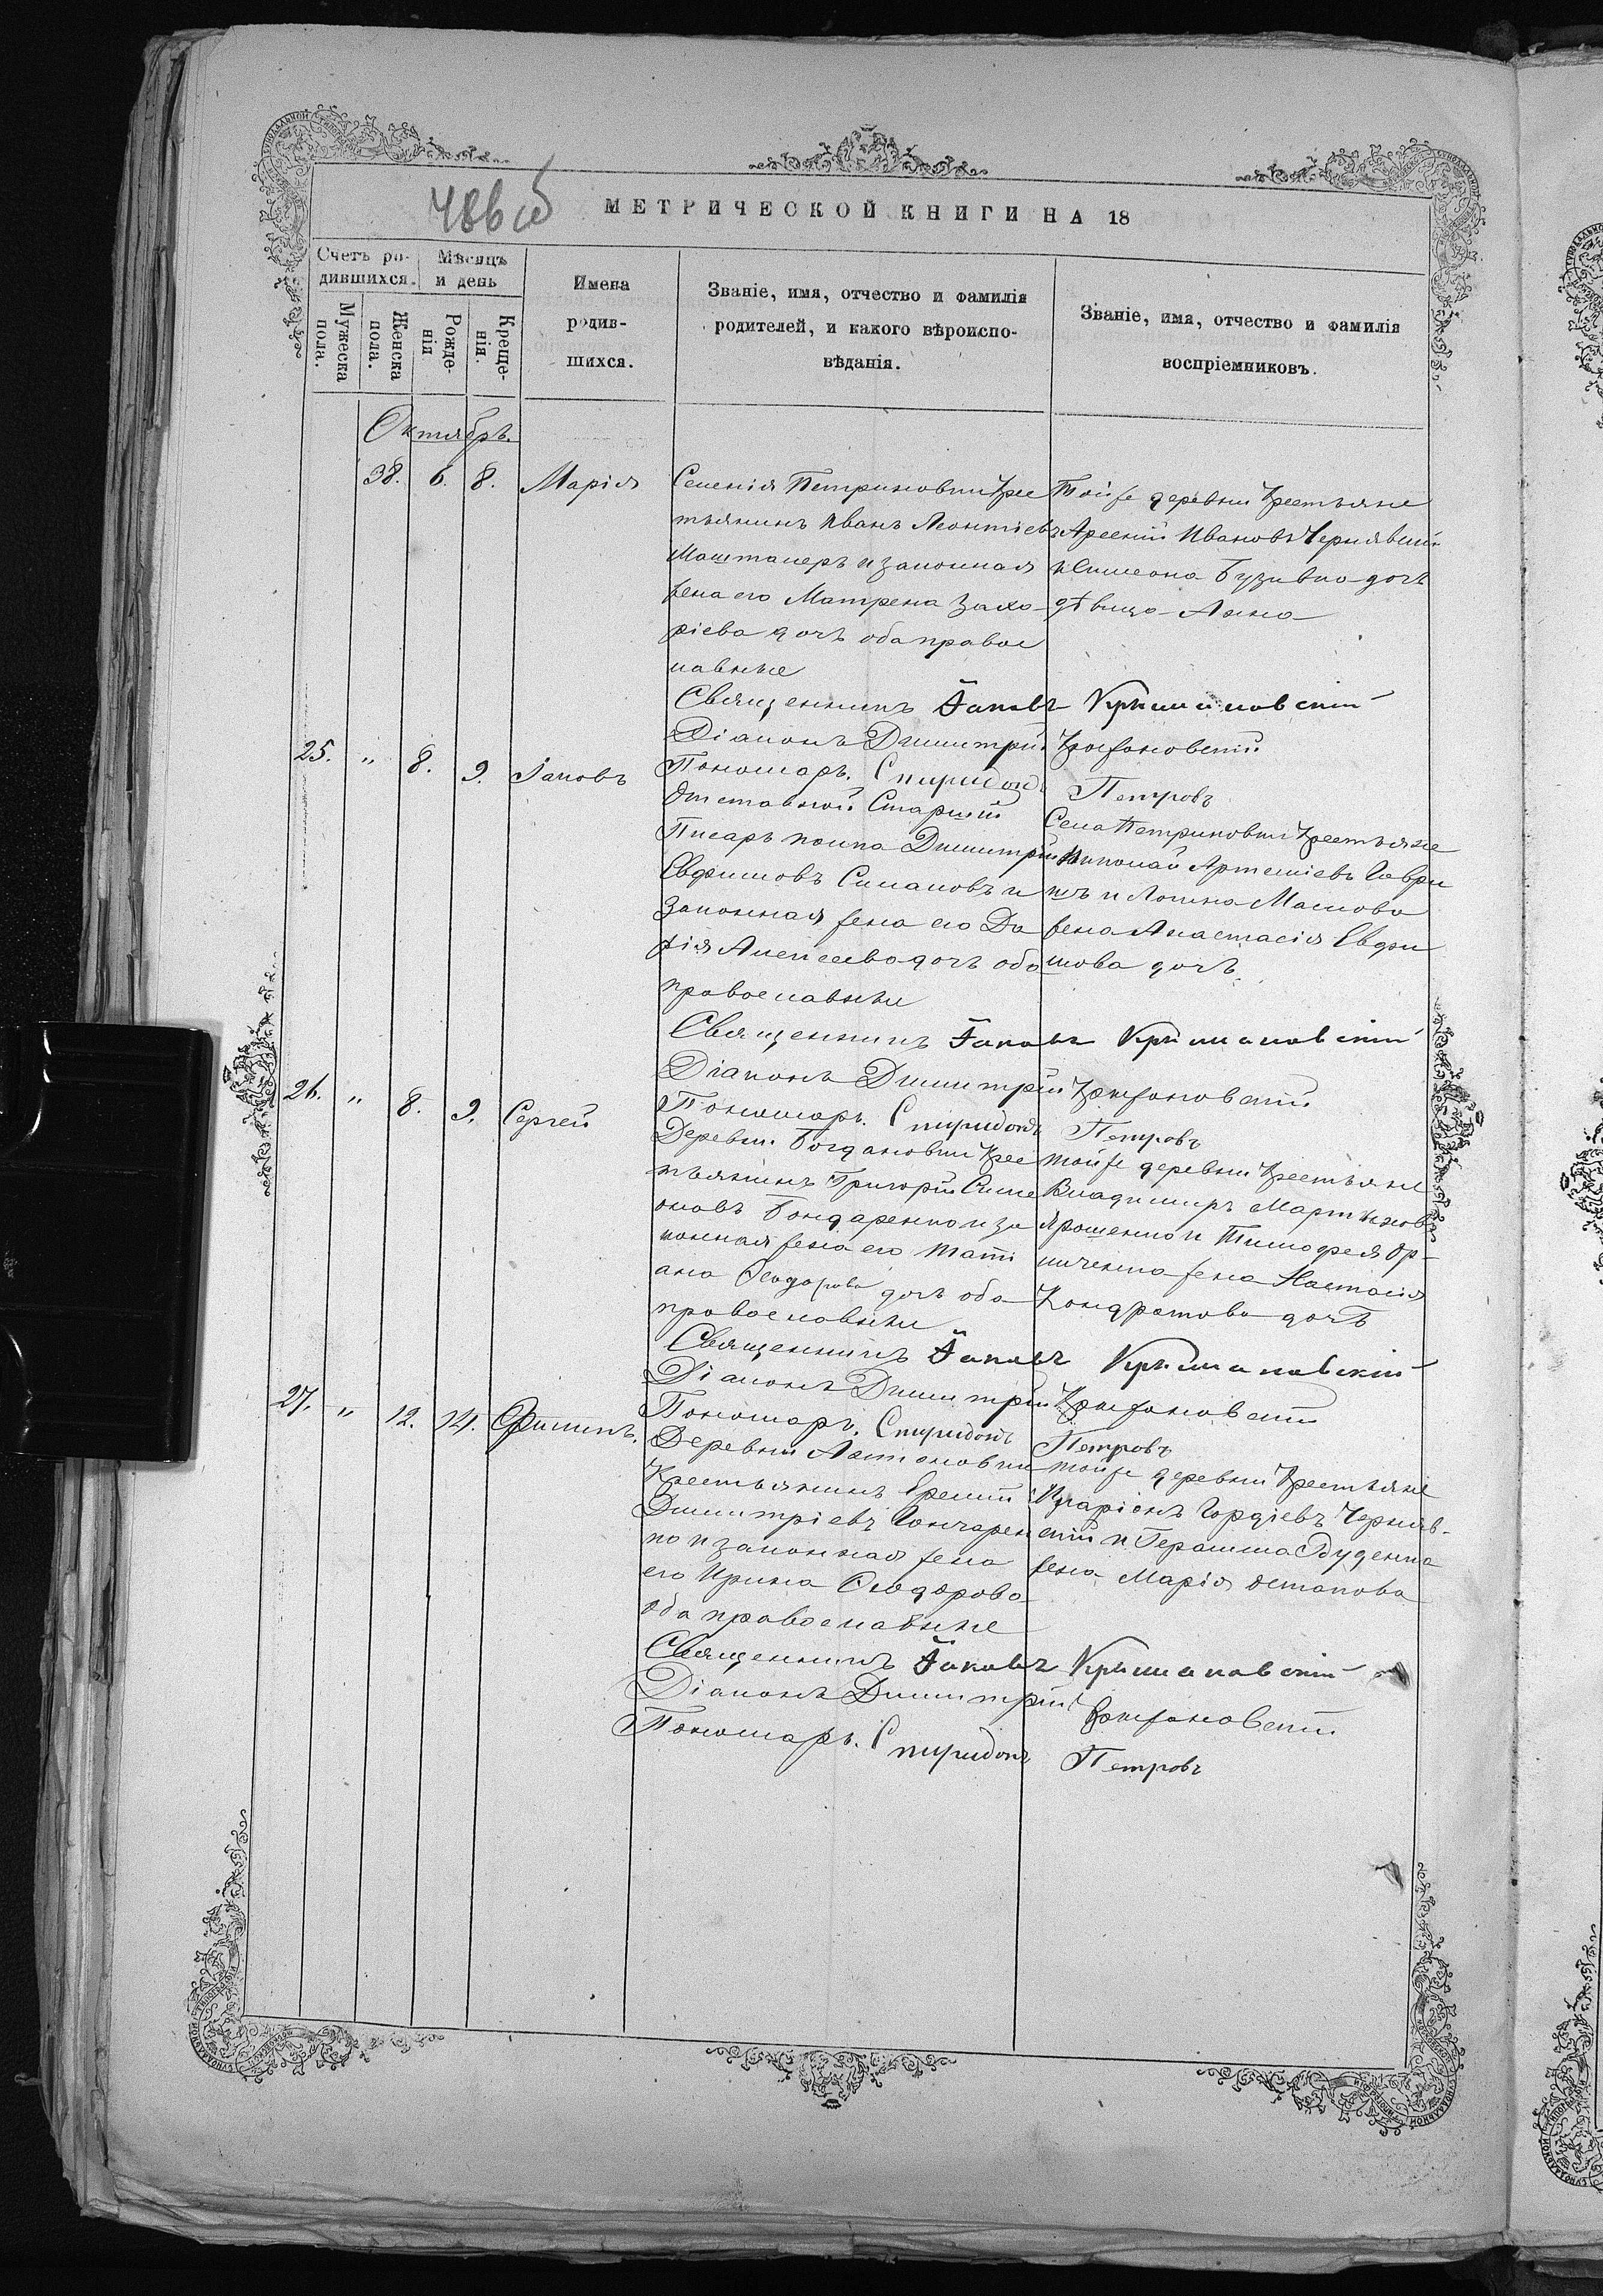 486 об
МЕТРИЧЕСКОЙ КНИГИ НА 18
Счетъ ро-
дившихся.
Мѣсяцъ
и день
Мужеска
пола.
Женска
пола.
Рожде-
нія
Креще-
нія.
Имена
родив-
шихся.
Званіе, имя, отчество и фамилія
родителей, и какого вѣроиспо-
вѣданія.
Званіе, имя, отчество и фамилія
воспріемниковъ.
Октябрь.
38. 6. 8. Марія
Селенія Петриковки Крес
тьянинъ Иванъ Леонтіевъ
Машталеръ и законная
жена его Матрена Заха-
ріева дочь оба правос
лавные
Тойже деревни Крестьяне
Арсеній Ивановъ Чернявскій
и Симеона Бузивка дочь
дѣвица Анна
Священникъ Іаковъ Крыжановскій
Діаконъ Димитрій
Пономарь. Спиридонъ Петровъ
25. " 8. 9. Іаковъ
Отставной Старшій
Писарь полка Димитрій
Евфимовъ Симаковъ и
законная жена его Да
рія Алексеева дочь оба
православные
Села Петриковки Крестьяне
Николай Артеміевъ Гаври
шъ и
жена Анастасія Евфи
мова дочь
Священникъ Іаковъ Крыжановскій
Діаконъ Димитрій
Пономарь. Спиридонъ Петровъ
26. " 8. 9. Сергей
Деревни Богдановки Крес
тьянинъ Григорій Симе
оновъ Бондаренко и за
конная жена его Тати
ана Феодорова дочь оба
православные
Тойже деревни Крестьяне
Владимиръ Мартыновъ
Ярошенко и Тимофея Ор-
личенка жена Настасія
Кондратова дочь
Священникъ Іаковъ Крыжановскій
Діаконъ Димитрій
Пономарь. Спиридонъ Петровъ
27. " 12. 14. Филипъ.
Деревни Антоновки
Крестьянинъ Еремій
Димитріевъ Гончарен
ко и законная жена
его Ирина Феодорова
оба православные
Тойже деревни Крестьяне
Иларіонъ Гордіевъ Черняв-
скій и Герасима Дуденка
жена Марія Остапова
Священникъ Іаковъ Крыжановскій
Діаконъ Димитрій
Пономарь. Спиридонъ Петровъ